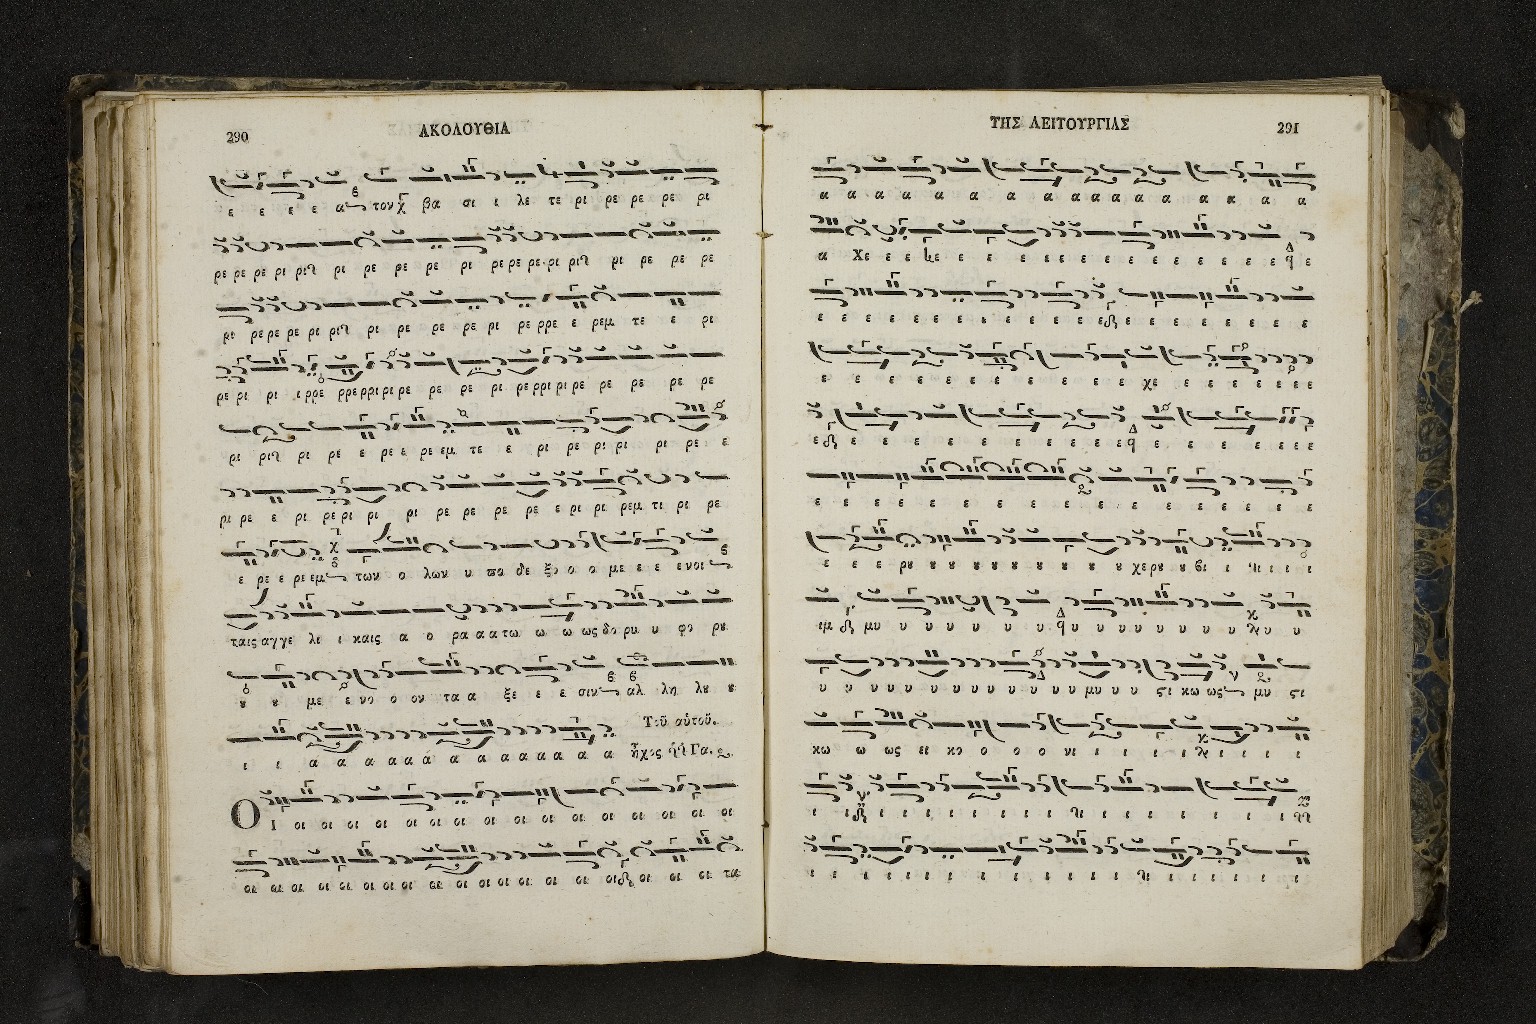 290
ΑΚΟΛΟΥΘΙΑ
ε ε ε ε α τουχ βα σι ι λε τε ρι ρε ρε ρε ρι
ρε ρε ρε ρι ρι ρι ρε ρε ρε ρι ρε ρε ρε ρι ρι ρι ρε ρε ρε
ρι ρε ρε ρε ρι ρι ρι ρε ρε ρε ρι ρε ρρε ε ρεμ τε ε ρι
ρε ρι ρι ι ρρε ρρε ρρι ρι ρε ρε ρε ρι ρε ρρι ρι ρε ρε ρε ρε ρε
ρι ρι ρι ρε ε ρε ε ρε εμ τε ε ρι ρε ρι ρι ρι ρε ε
ρι ρε ε ρι ρε ρι ρι ρι ρε ρε ρε ρε ε ρι ρι ρεμ τι ρι ρε
ε ρε ε ρε εμ των ο λων υ πο δε ξο ο ο με ε ε ενοι
ταις αγγε λι ι καις α ο ρα α α τω ω ω ως δο ρυ υ φο ρȣ
ȣ ȣ με ε νο ο ον τα α ξε ε ε σιν αλ λη λȣ ȣ
ι ι α α α α α α α α α α α α α
Τοῦ αὐτοῦ.
ἦχος Γα.
Ο ι οι οι οι οι οι οι οι οι οι οι οι οι οι οι οι οι
οι οι οι οι οι οι οι οι οι οι οι οι οι οι οι οι οι οι οι τα
ΤΗΣ ΛΕΙΤΟΥΡΓΙΑΣ
291
α α α α α α α α α α α α α α α α α
α Χε ε ε ε ε ε ε ε ε ε ε ε ε ε ε ε ε ε
ε ε ε ε ε ε ε ε ε ε ε ε ε ε ε ε ε ε ε ε
ε ε ε ε ε ε ε ε ε ε χε ε ε ε ε ε ε ε
ε ε ε ε ε ε ε ε ε ε ε ε ε ε ε ε ε ε ε
ε ε ε ε ε ε ε ε ε ε ε ε ε ε ε ε ε
ε ε ε ρȣ ȣ ȣ ȣ ȣ ȣ ȣ ȣ ȣ ȣ χε ρȣ ȣ βι ι ι ι ι ι
ιμ μυ υ υ υ υ υ υ υ υ υ υ υ υ υ υ υ υ υ
υ υ υ υ υ υ υ υ υ υ υ υ υ υ μυ υ υ ςι κω ως μυ ςι
κω ω ως ει κο ο ο ο νι ι ι ι ι ι ι ι ι
ι ι ι ι ι ι ι ι ι ι ι ι ι ι ι ι
ι ι ι ι ι ι ι ι ι ι ι ι ι ι ι ι ι